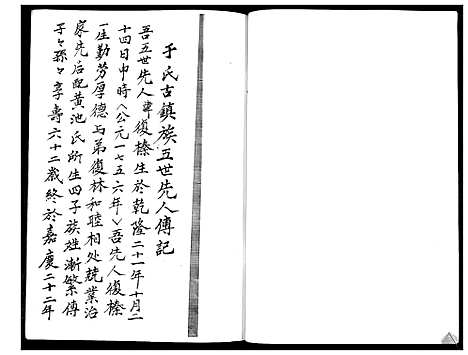 于氏古鎮族五世先人傳記
吾五世先人諱復榛生於乾隆二十一年十月二
十四日申時〈公元一七五六年〉吾先人復榛
一生勤劳厚德与弟復林和睦相处兢業治
家先后配黃池氏所生四子族姓漸繁傳
子々孫々享壽六十二歲終於嘉慶二十二年